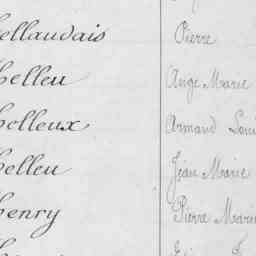 ellaudais Pierre
helleu Ange Marie
holleux Armand Loui
helleu Jean Marie
henry Pierre Marie